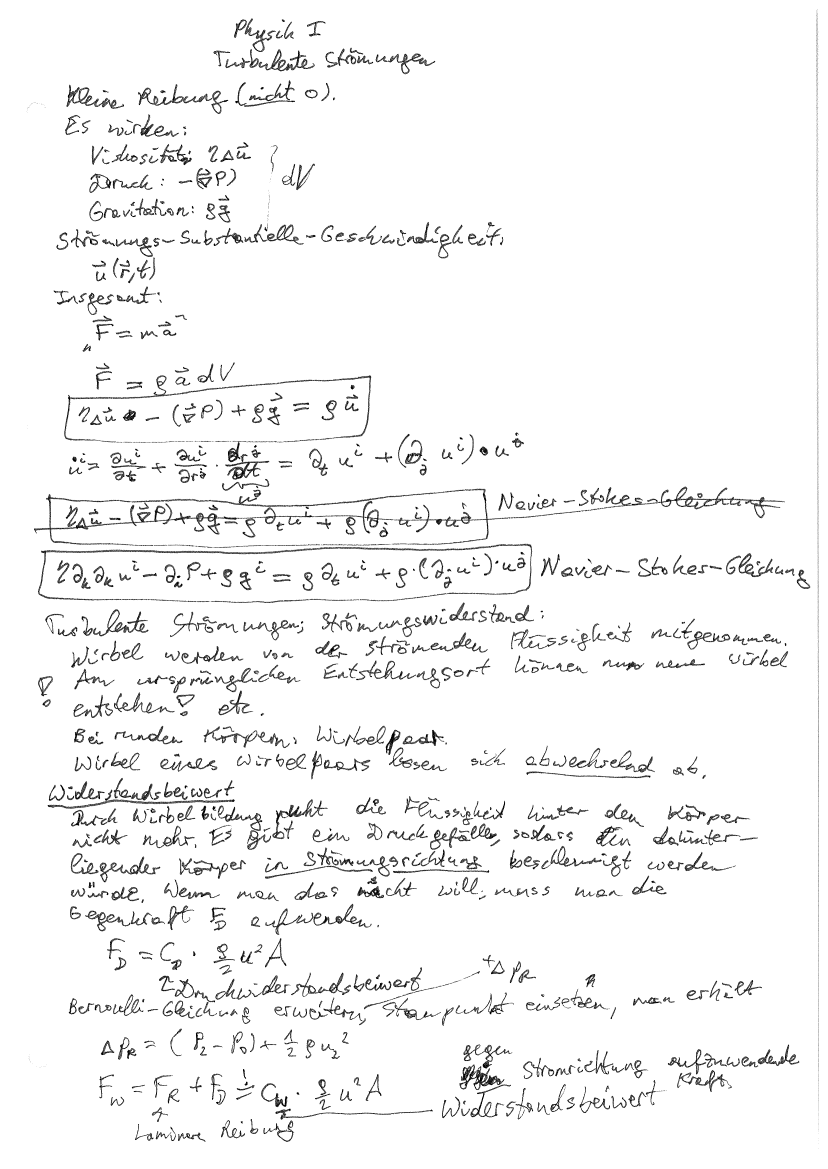 Physik I
Turbulente Strömungen
Kleine Reibung (nicht 0).
Es wirken:
Viskosität: ηΔu⃗
Druck: -(∇⃗P) } dV
Gravitation: ρg⃗
Strömungs-Substantielle-Geschwindigkeit:
u⃗(r⃗,t)
Insgesamt:
„F⃗ = ma⃗"
F⃗ = ρ a⃗ dV
ηΔu⃗ - (∇⃗P) + ρg⃗ = ρ u̇⃗
u̇ⁱ = ∂uⁱ/∂t + ∂uⁱ/∂rʲ · drʲ/dt = ∂ₜ uⁱ + (∂ⱼ uⁱ) • uʲ
uʲ
ηΔu⃗ - (∇⃗P) + ρg⃗ = ρ ∂ₜuⁱ + ρ(∂ⱼ uⁱ) • uʲ Navier-Stokes-Gleichung
η∂ₖ∂ₖuⁱ - ∂ᵢP + ρgⁱ = ρ ∂ₜuⁱ + ρ·(∂ⱼuⁱ)·uʲ Navier-Stokes-Gleichung
Turbulente Strömungen; Strömungswiderstand:
Wirbel werden von der strömenden Flüssigkeit mitgenommen.
! Am ursprünglichen Entstehungsort können nun neue Wirbel
entstehen! etc.
Bei runden Körpern: Wirbelpaar.
Wirbel eines Wirbelpaars lösen sich abwechselnd ab.
Widerstandsbeiwert
Durch Wirbelbildung ruht die Flüssigkeit hinter den Körper
nicht mehr. Es gibt ein Druckgefälle, sodass ein dahinter-
liegender Körper in Strömungsrichtung beschleunigt werden
würde. Wenn man das nicht will, muss man die
Gegenkraft F_D aufwenden.
F_D = C_D · ρ/2 u² A
Druckwiderstandsbeiwert +Δp_R
Bernoulli-Gleichung erweitern, Staupunkt einsetzen, man erhält
Δp_R = (P₂ - P₀) + ½ρu₂²
gegen
F_W = F_R + F_D = C_W · ρ/2 u² A Stromrichtung aufzuwendende
Kraft.
Widerstandsbeiwert
Laminare Reibung